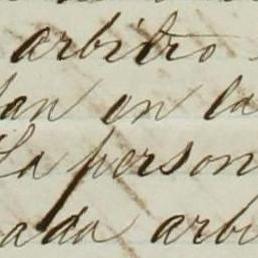 arbitro
tan en la
La person
ada arbi